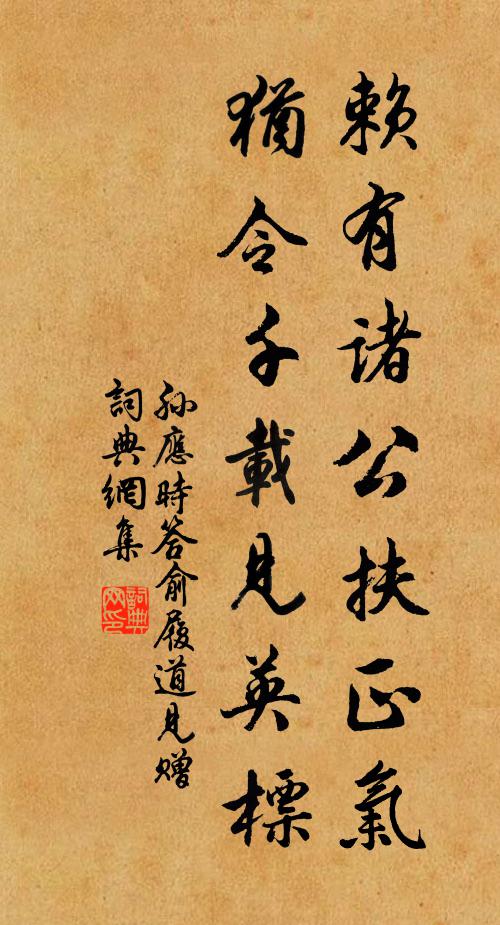 賴有諸公扶正氣
猶令千載見英標
孫應時答俞履道見贈
詞典網集
詞典网印